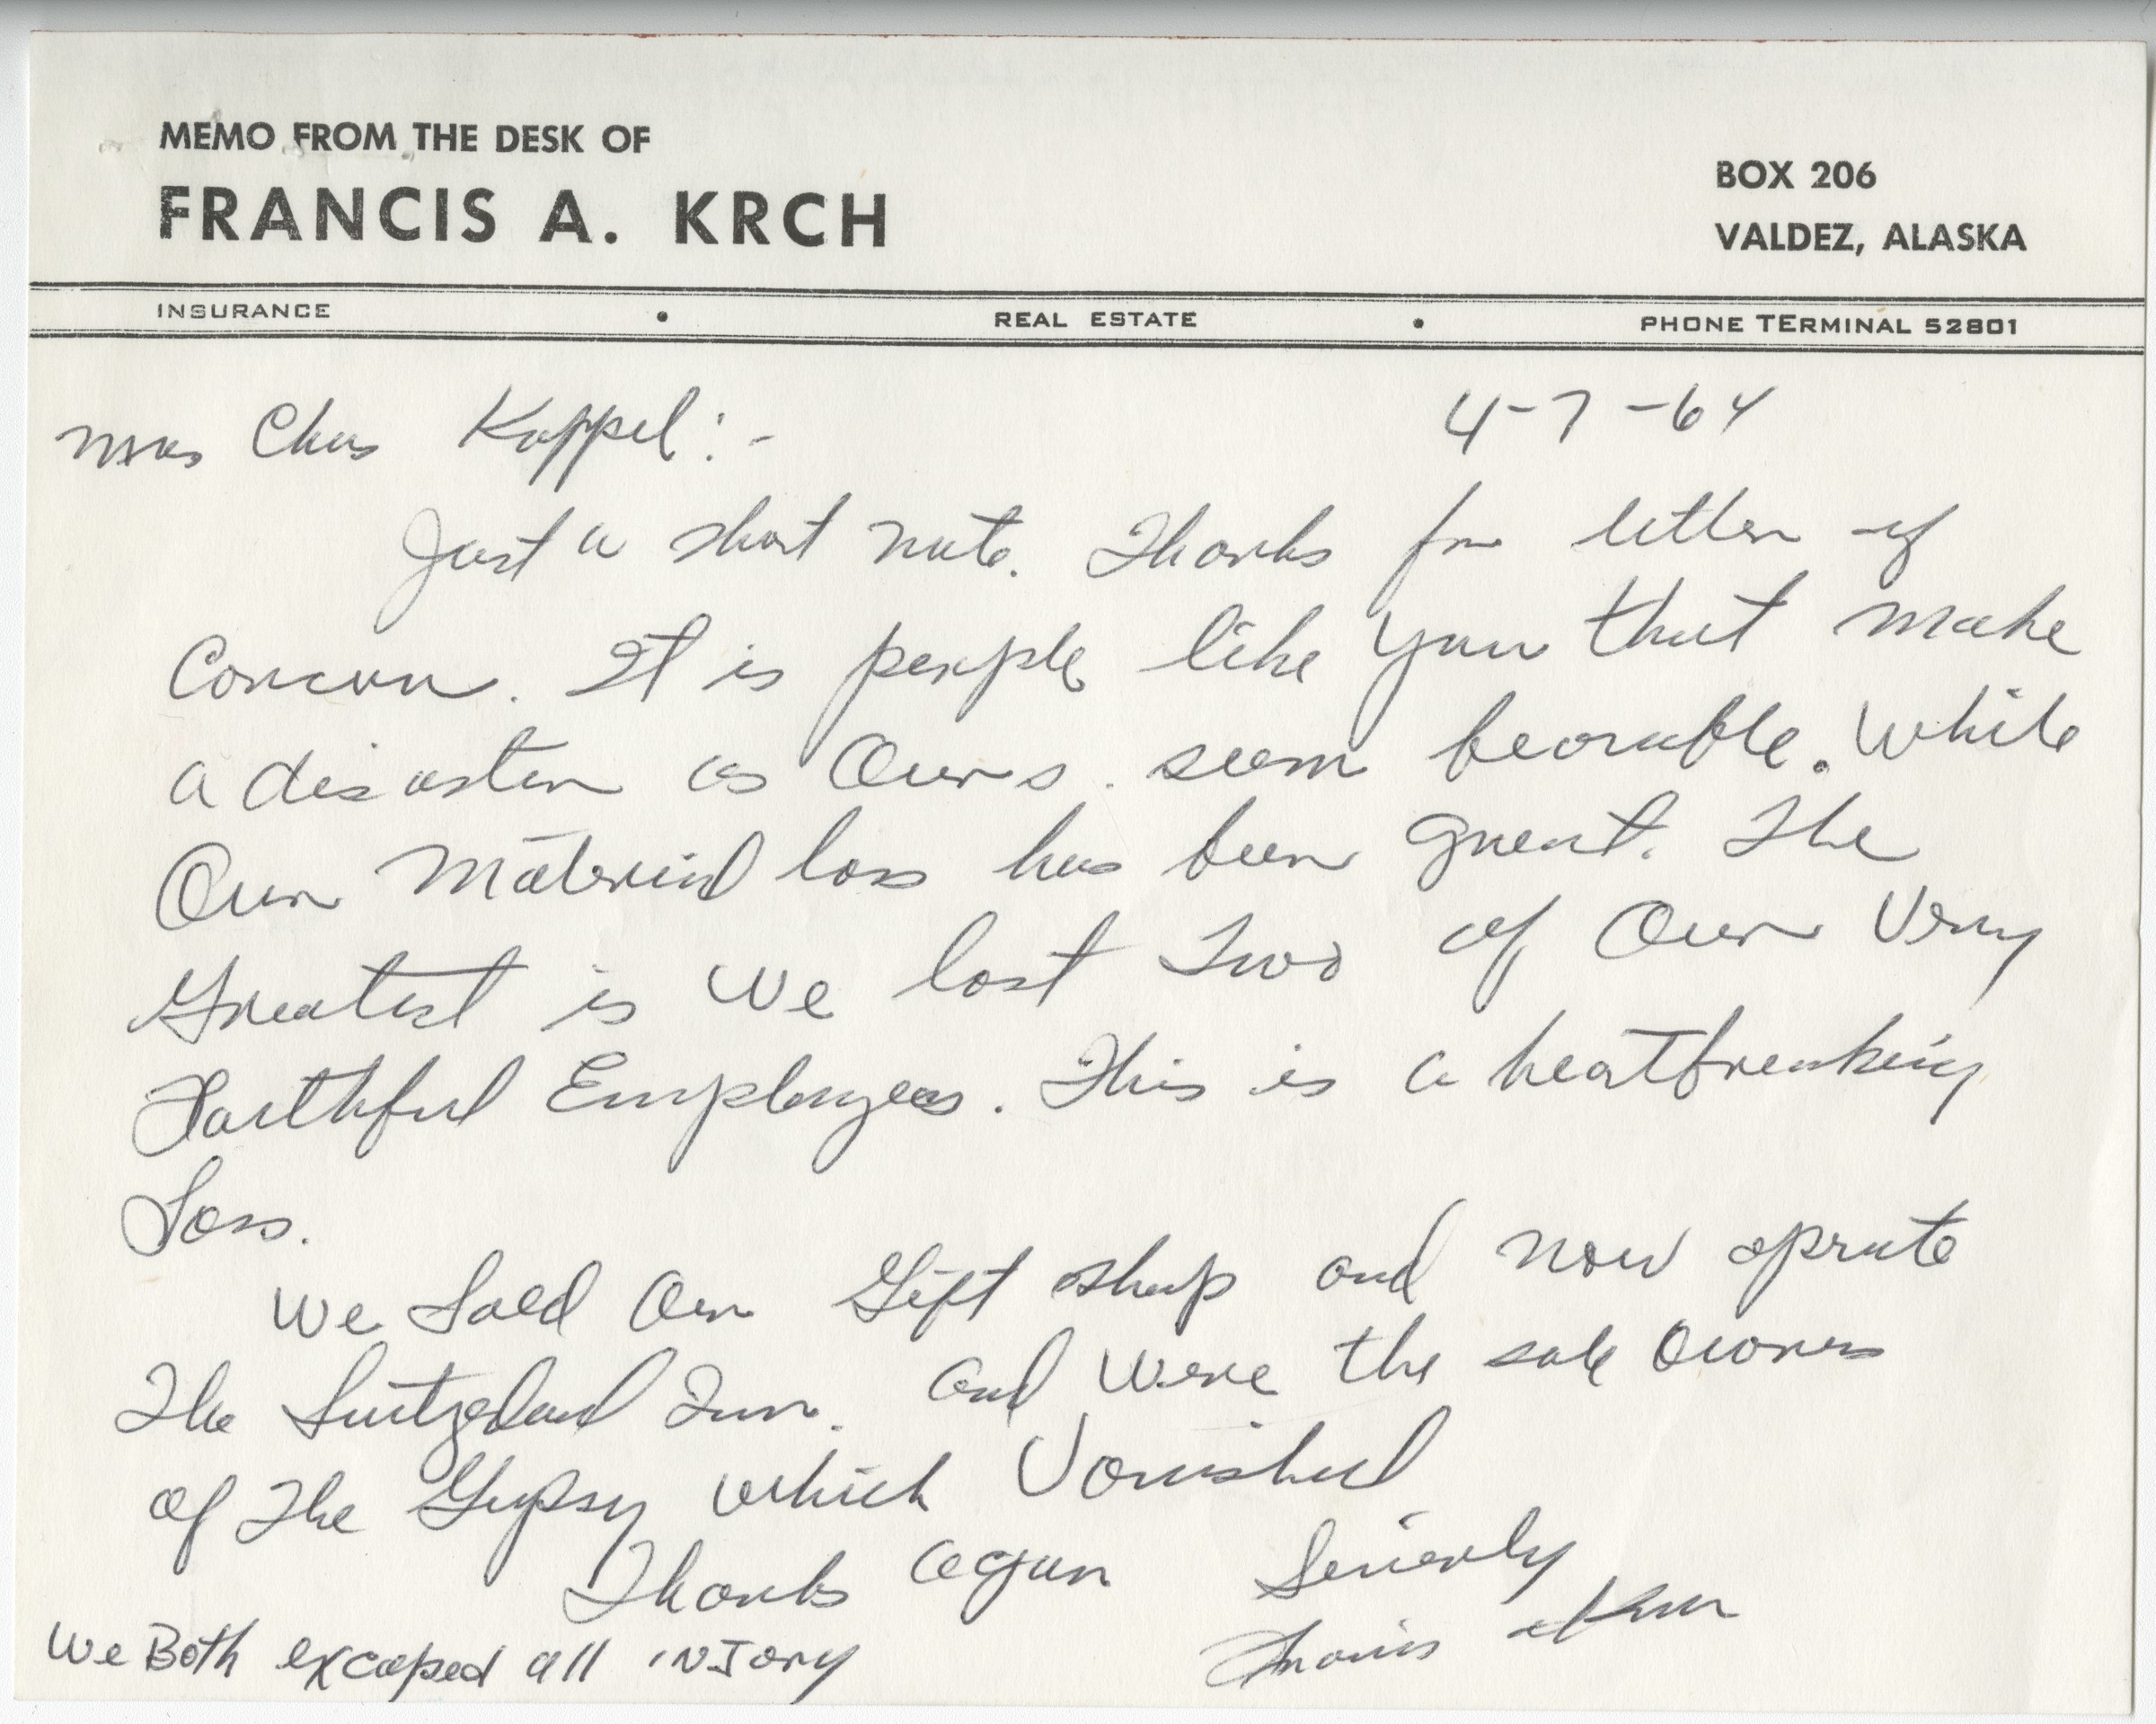 MEMO FROM THE DESK OF
FRANCIS A. KRCH
BOX 206
VALDEZ, ALASKA
INSURANCE • REAL ESTATE • PHONE TERMINAL 52801
Mrs Chas Koppel:- 4-7-64
Just a short note. Thanks for letter of
Concern. It is people like you that make
a disaster as Ours. seem bearable. While
Our Material loss has been great. The
Greatest is We lost Two of Our Very
Faithful Employees. This is a heartbreaking
Loss.
We Sold Our Gift shop and now oprate
The Switzerland Inn. and were the sole Owners
of The Gypsy which Vanished
Thanks again Sincerly
Francis Krch
We Both excaped all INJory